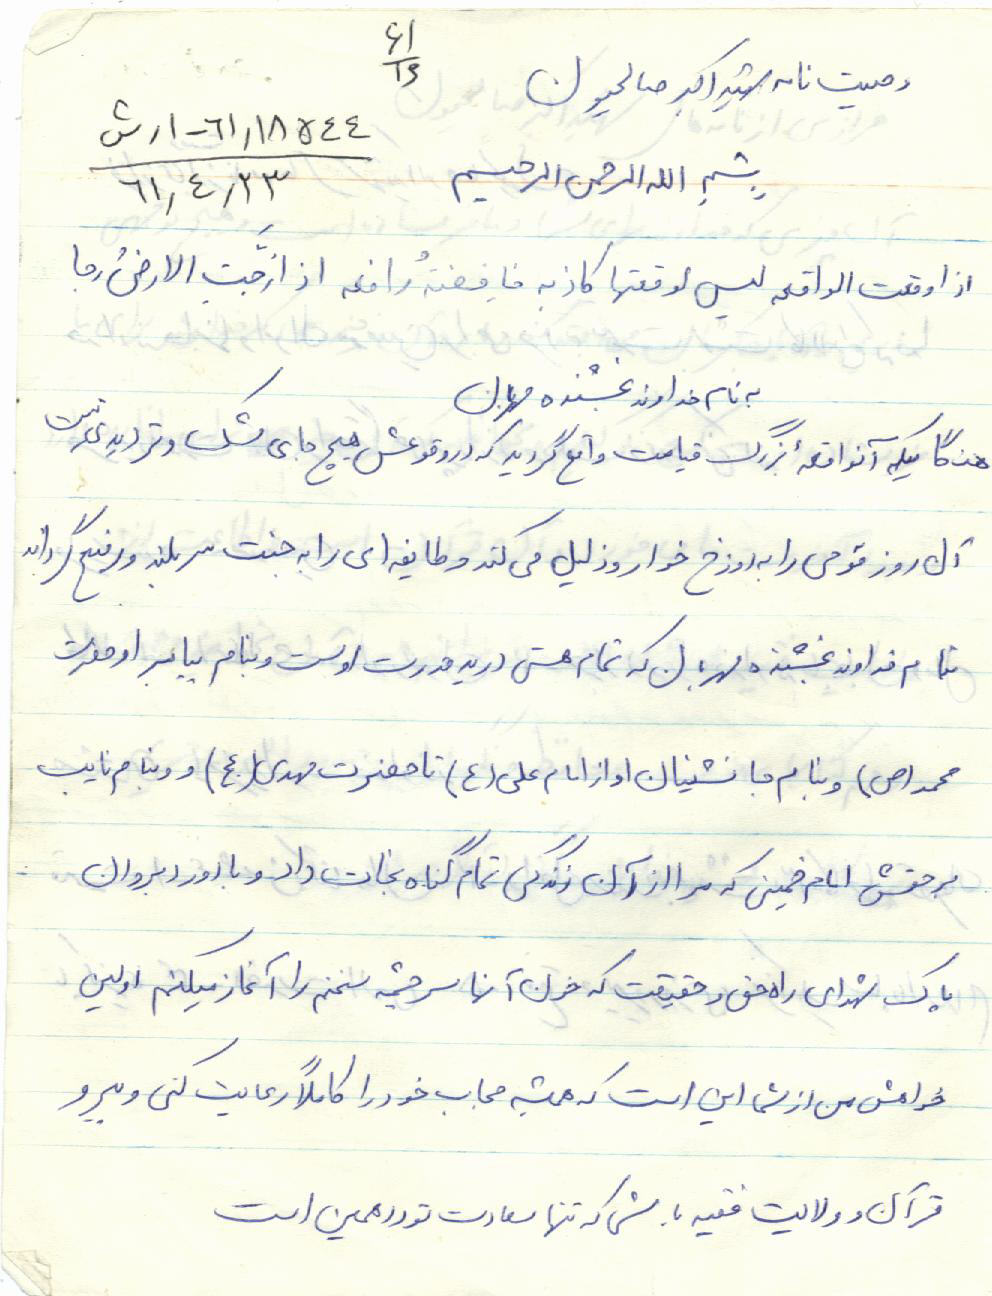 ۶۱
۱۶
وصیت نامه شهید اکبر صالحیون
۶۱٫۱۸۵۴۴-۱رش
۶۱٫۴٫۲۳
بسم الله الرحمن الرحیم
اذا وقعت الواقعه لیس لوقعتها کاذبه خافضةُ رافعه اذا رَّجت الارضُ رجا
به نام خداوند بخشنده مهربان
هنگامیکه آنواقعهٔ بزرگ قیامت واقع گردید که در وقوعش هیچ جای شک و تردیدی نیست
آن روز قومی را به دوزخ خوار و ذلیل می کند و طایفه ای را به جنت سربلند و رفیع گرداند
بنام خداوند بخشنده مهربان که تمام هستی در ید قدرت اوست و بنام پیامبر او حضرت
محمد (ص) و بنام جانشینان او از امام علی (ع) تا حضرت مهدی (عج) و و بنام نایب
برحقش امام خمینی که مرا از آن زندگی تمام گناه نجات داد و با درود بروان
پاک شهدای راه حق و حقیقت که خون آنها سرچشمه سخنم را آغاز میکنم اولین
خواهش من از شما این است که همیشه حجاب خود را کاملاً رعایت کنی و پیرو
قرآن و ولایت فقیه باشی که تنها سعادت تو در همین است